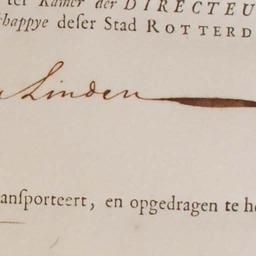 ter Kamer der DIRECTEU
chappye deser Stad ROTTERD
Linden
ansporteert, en opgedragen te h